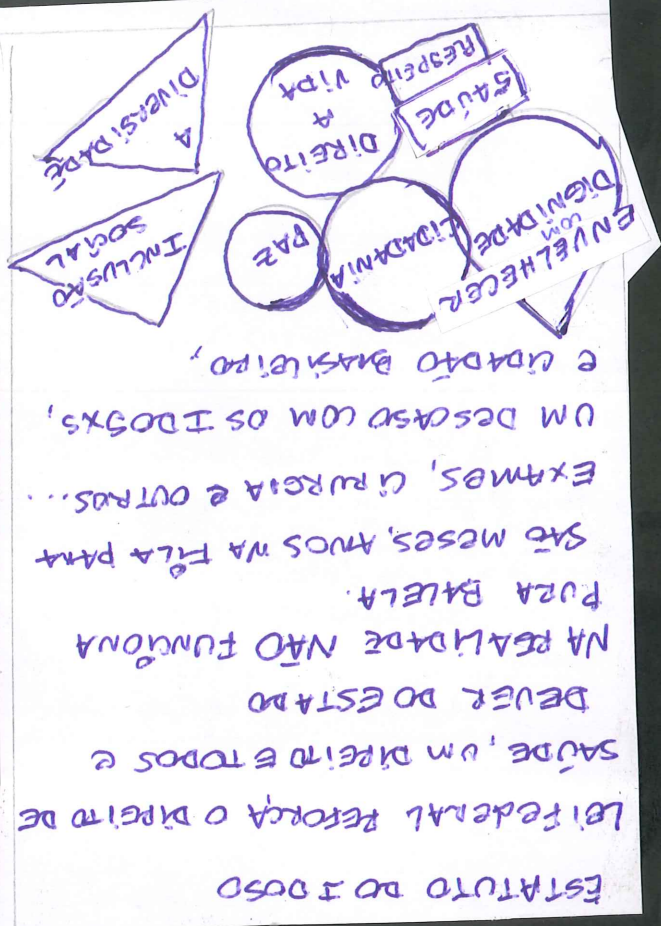 ESTATUTO DO IDOSO
Lei Federal REFORÇA O DIREITO DE
SAÚDE, UM DIREITO E TODOS e
DEVER DO ESTADO
NA REALIDADE NÃO FUNCIONA
PURA BALELA.
SÃO MESES, ANOS NA FILA PARA
EXAMES, CIRURGIA e OUTROS...
UM DESCASO COM OS IDOSXS,
e CIDADÃO BRASILEIRO,
ENVELHECER
COM
DIGNIDADE
CIDADANIA
PAZ
INCLUSÃO
SOCIAL
SAÚDE
RESPEITO
DIREITO
A
VIDA
A
DIVERSIDADE